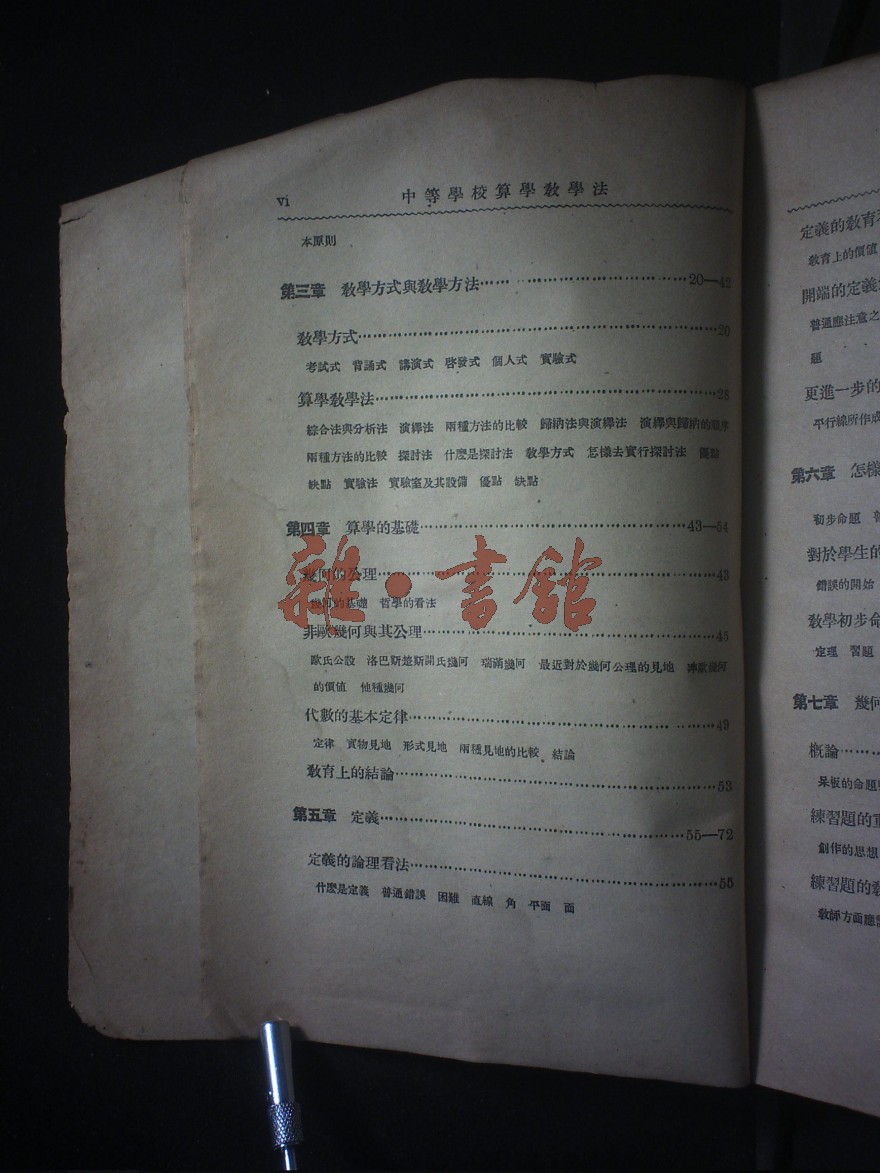 vi 中等學校算學敎學法
本原則
第三章 敎學方式與敎學方法……20—42
敎學方式……20
考試式 背誦式 講演式 啓發式 個人式 實驗式
算學敎學法……28
綜合法與分析法 演繹法 兩種方法的比較 歸納法與演繹法 演繹與歸納的順序
兩種方法的比較 探討法 什麽是探討法 敎學方式 怎樣去實行探討法 優點
缺點 實驗法 實驗室及其設備 優點 缺點
第四章 算學的基礎……43—54
幾何的公理……43
幾何的基礎 哲學的看法
非歐幾何與其公理……45
歐氏公設 洛巴斯楚斯開氏幾何 瑞滿幾何 最近對於幾何公理的見地 非歐幾何
的價值 他種幾何
代數的基本定律……49
定律 實物見地 形式見地 兩種見地的比較 結論
敎育上的結論……53
第五章 定義……55—72
定義的論理看法……55
什麽是定義 普通錯誤 困難 直線 角 平面 面
雜·書館
定義的敎育
敎育上的價値
開端的定義
普通應注意之
題
更進一步的
平行線所作成
第六章 怎樣
初步命題
對於學生的
錯誤的開始
敎學初步命
定理 習題
第七章 幾何
槪論……
呆板的命題
練習題的重
創作的思想
練習題的敎
敎師方面應當